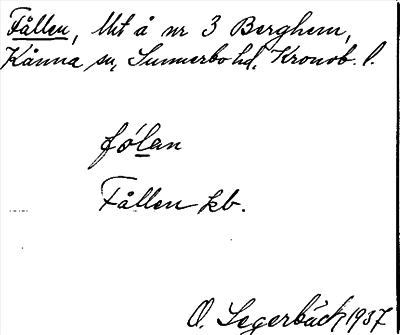 Fållen, Ut å nr 3 Berghem,
Kånna sn, Sunnerbo hd, Kronob. l.
fó̱lan
Fållen kb.
O. Segerbäck 1937